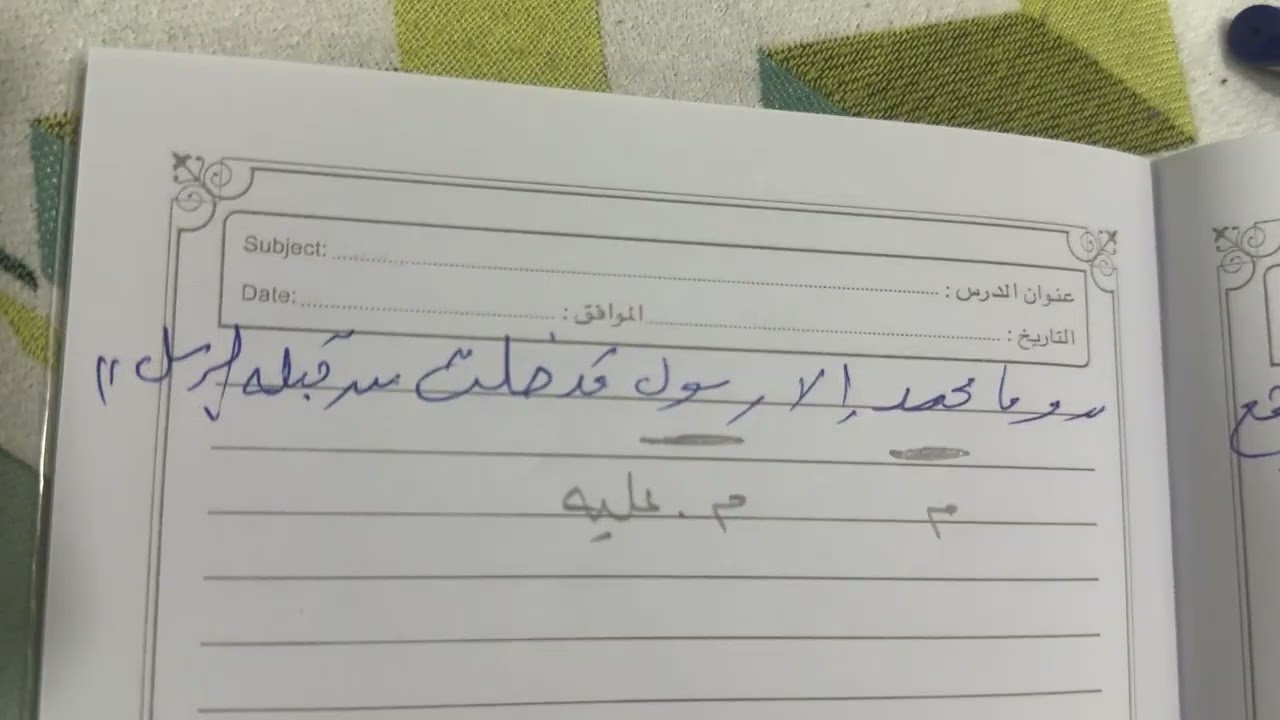 Subject: عنوان الدرس :
Date: الموافق : التاريخ :
" وما محمد إلا رسول قد خلت من قبله الرسل "
م م . عليه